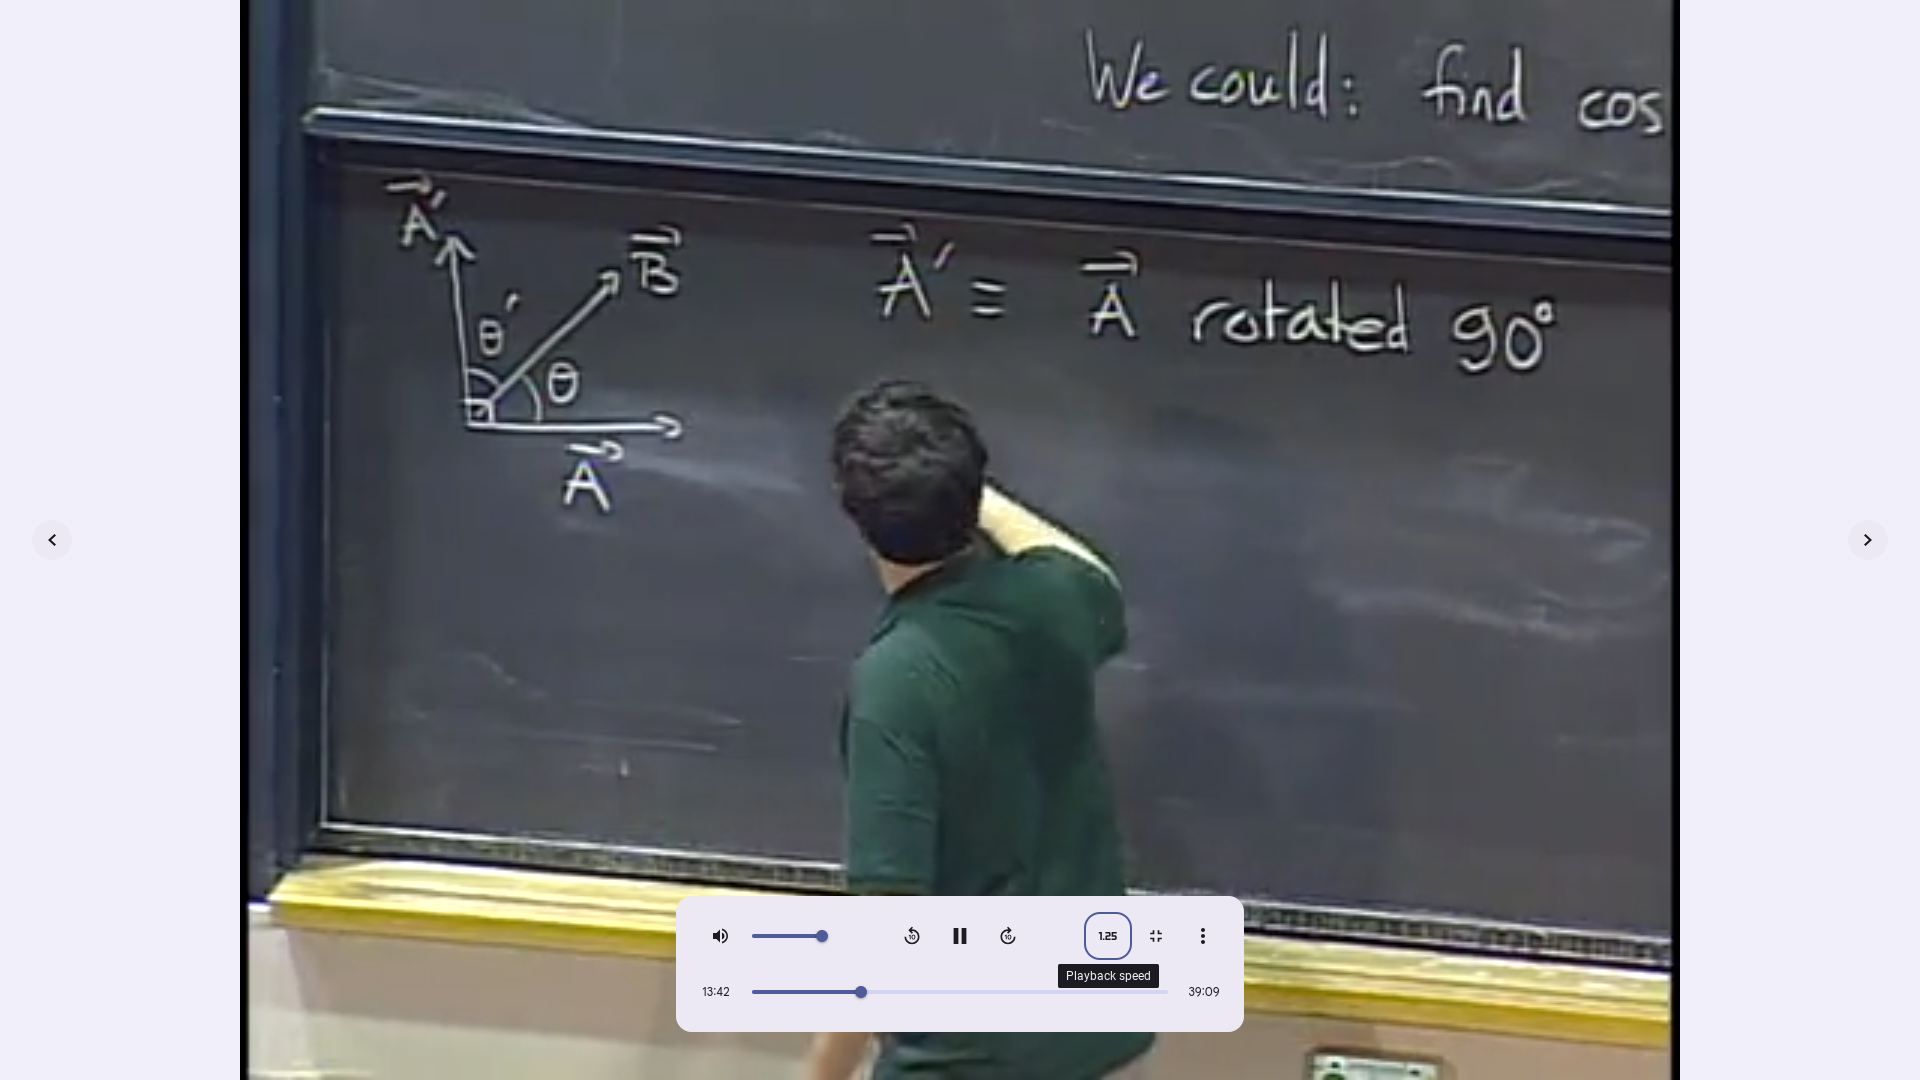 We could: find cos
A' B
A' ≡ A rotated 90°
θ'
θ
A
10 10 1.25
Playback speed
13:42 39:09